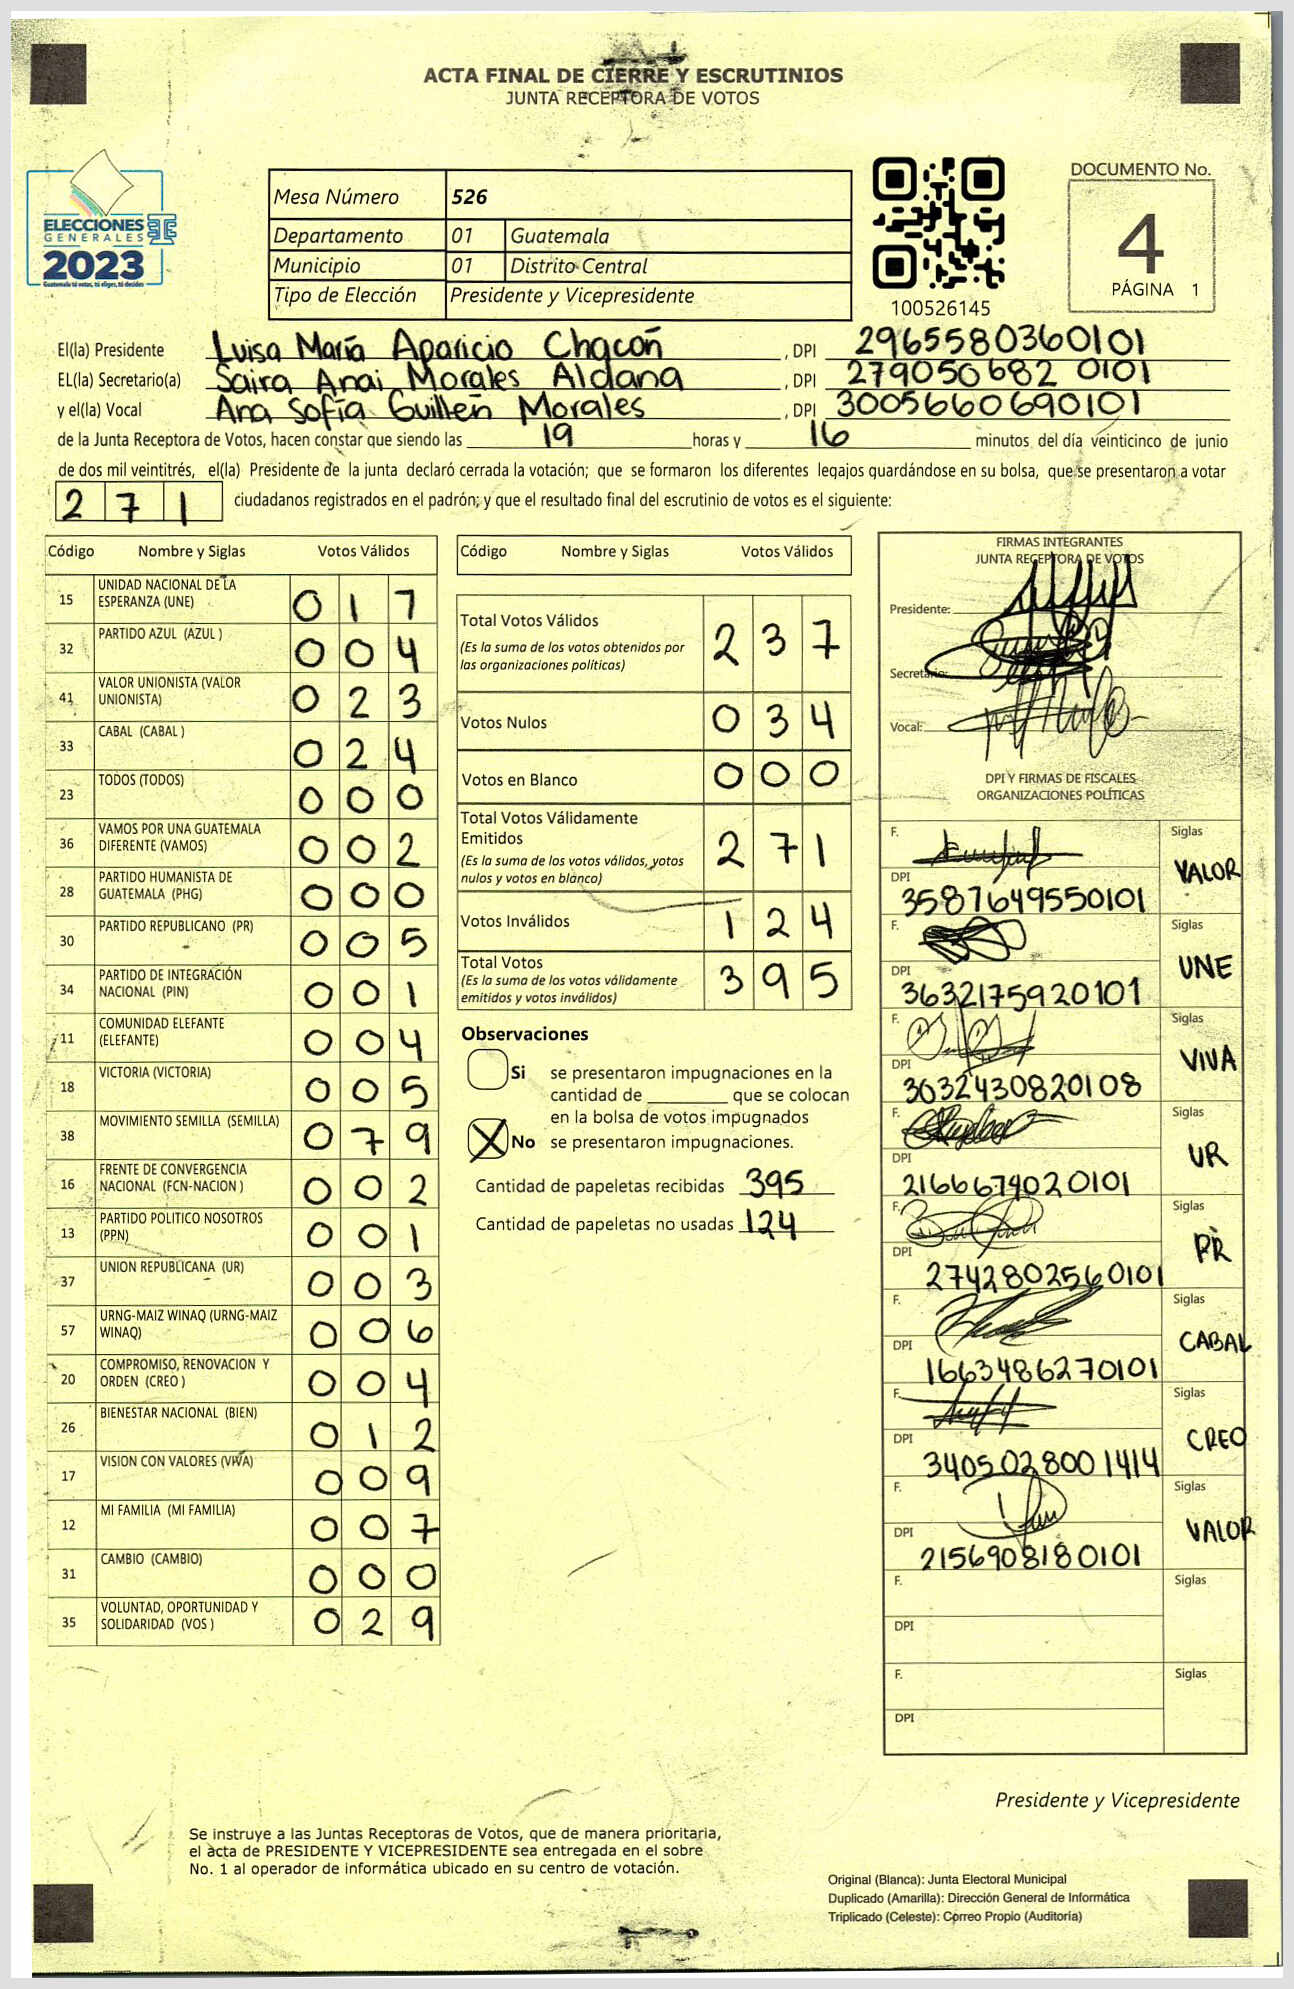 ACTA FINAL DE CIERRE Y ESCRUTINIOS
JUNTA RECEPTORA DE VOTOS
ELECCIONES
GENERALES
2023
Guatemala tú votas, tú eliges, tú decides
Mesa Número 526
Departamento 01 Guatemala
Municipio 01 Distrito Central
Tipo de Elección Presidente y Vicepresidente
100526145
DOCUMENTO No.
4
PÁGINA 1
El(la) Presidente Luisa María Aparicio Chacón, DPI 2965580360101
EL(la) Secretario(a) Saira Anai Morales Aldana, DPI 279050682 0101
y el(la) Vocal Ana Sofía Guillén Morales, DPI 3005660690101
de la Junta Receptora de Votos, hacen constar que siendo las 19 horas y 16 minutos del día veinticinco de junio
de dos mil veintitrés, el(la) Presidente de la junta declaró cerrada la votación; que se formaron los diferentes legajos guardándose en su bolsa, que se presentaron a votar
271 ciudadanos registrados en el padrón; y que el resultado final del escrutinio de votos es el siguiente:
Código Nombre y Siglas Votos Válidos
15 UNIDAD NACIONAL DE LA ESPERANZA (UNE) 017
32 PARTIDO AZUL (AZUL ) 004
41 VALOR UNIONISTA (VALOR UNIONISTA) 023
33 CABAL (CABAL ) 024
23 TODOS (TODOS) 000
36 VAMOS POR UNA GUATEMALA DIFERENTE (VAMOS) 002
28 PARTIDO HUMANISTA DE GUATEMALA (PHG) 000
30 PARTIDO REPUBLICANO (PR) 005
34 PARTIDO DE INTEGRACIÓN NACIONAL (PIN) 001
11 COMUNIDAD ELEFANTE (ELEFANTE) 004
18 VICTORIA (VICTORIA) 005
38 MOVIMIENTO SEMILLA (SEMILLA) 079
16 FRENTE DE CONVERGENCIA NACIONAL (FCN-NACION ) 002
13 PARTIDO POLITICO NOSOTROS (PPN) 001
37 UNION REPUBLICANA (UR) 003
57 URNG-MAIZ WINAQ (URNG-MAIZ WINAQ) 006
20 COMPROMISO, RENOVACION Y ORDEN (CREO ) 004
26 BIENESTAR NACIONAL (BIEN) 012
17 VISION CON VALORES (VIVA) 009
12 MI FAMILIA (MI FAMILIA) 007
31 CAMBIO (CAMBIO) 000
35 VOLUNTAD, OPORTUNIDAD Y SOLIDARIDAD (VOS ) 029
Código Nombre y Siglas Votos Válidos
Total Votos Válidos 237
(Es la suma de los votos obtenidos por
las organizaciones políticas)
Votos Nulos 034
Votos en Blanco 000
Total Votos Válidamente
Emitidos 271
(Es la suma de los votos válidos, votos
nulos y votos en blanco)
Votos Inválidos 124
Total Votos 395
(Es la suma de los votos válidamente
emitidos y votos inválidos)
Observaciones
Si se presentaron impugnaciones en la
cantidad de ________ que se colocan
en la bolsa de votos impugnados
X No se presentaron impugnaciones.
Cantidad de papeletas recibidas 395
Cantidad de papeletas no usadas 124
FIRMAS INTEGRANTES
JUNTA RECEPTORA DE VOTOS
Presidente:
Secretario:
Vocal:
DPI Y FIRMAS DE FISCALES
ORGANIZACIONES POLÍTICAS
F. Siglas VALOR
DPI 3587649550101
F. Siglas UNE
DPI 3632175920101
F. Siglas VIVA
DPI 3032430820108
F. Siglas UR
DPI 2166674020101
F. Siglas PR
DPI 2742802560101
F. Siglas CABAL
DPI 1663486270101
F. Siglas CREO
DPI 3405028001414
F. Siglas VALOR
DPI 2156908180101
F. Siglas
DPI
F. Siglas
DPI
Presidente y Vicepresidente
Se instruye a las Juntas Receptoras de Votos, que de manera prioritaria,
el acta de PRESIDENTE Y VICEPRESIDENTE sea entregada en el sobre
No. 1 al operador de informática ubicado en su centro de votación.
Original (Blanca): Junta Electoral Municipal
Duplicado (Amarilla): Dirección General de Informática
Triplicado (Celeste): Correo Propio (Auditoría)